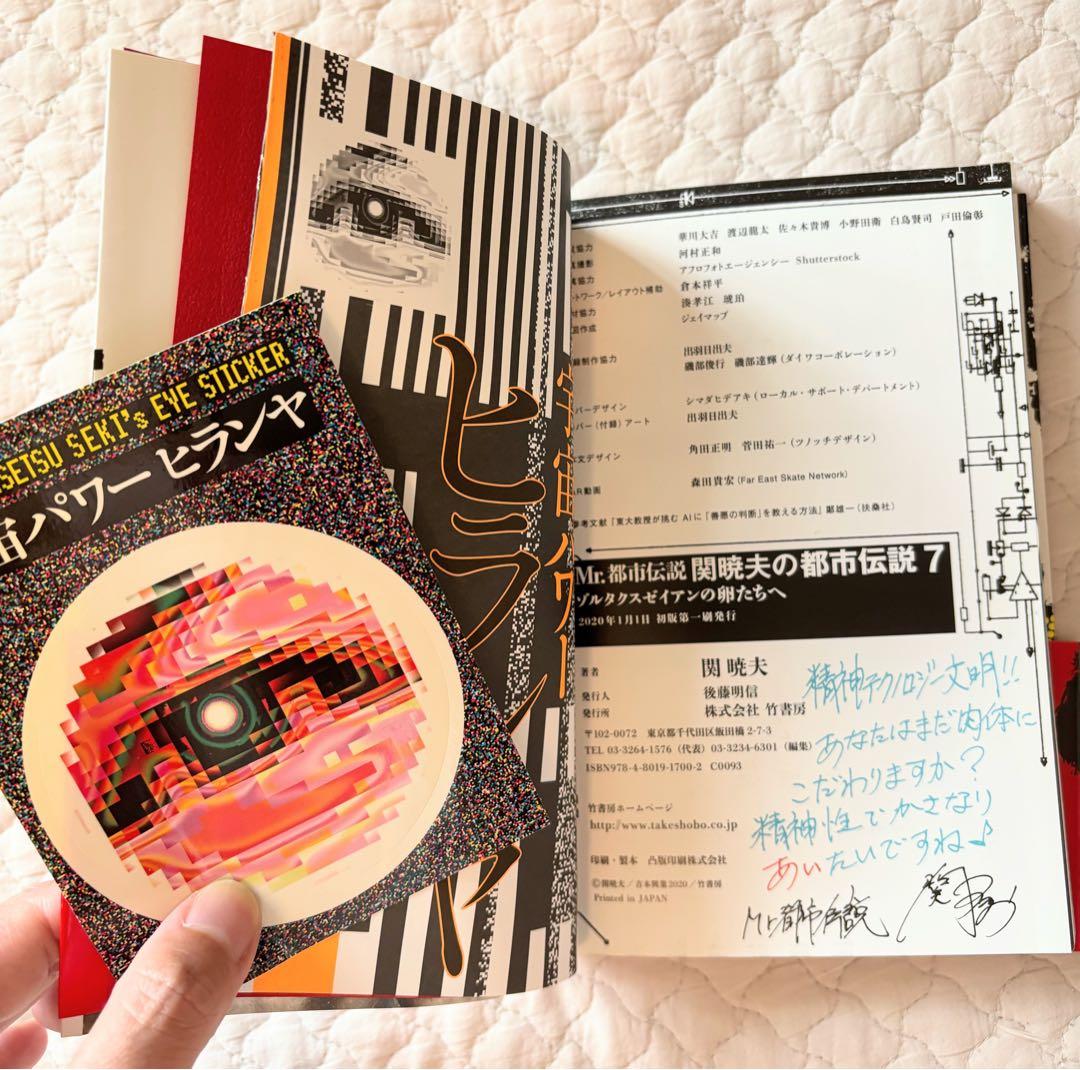 SETSU SEKI's EYE STICKER
宙パワー ヒランヤ
ヒランヤ
華川大吉 渡辺龍太 佐々木貴博 小野田衛 白鳥賢司 戸田倫彰
協力
河村正和
撮影
アフロフォトエージェンシー Shutterstock
協力
倉本祥平
トワーク/レイアウト補助
湊孝江 琥珀
材協力
ジェイマップ
図作成
出羽目出夫
録制作協力
磯部俊行 磯部達輝(ダイワコーポレーション)
バーデザイン
シマダヒデアキ(ローカル・サポート・デパートメント)
バー(付録)アート
出羽目出夫
本文デザイン
角田正明 菅田祐一(ツノッチデザイン)
AR動画
森田貴宏(Far East Skate Network)
参考文献『東大教授が挑む AIに「善悪の判断」を教える方法』鄭雄一(扶桑社)
Mr.都市伝説 関暁夫の都市伝説7
ゾルタクスゼイアンの卵たちへ
2020年1月1日 初版第一刷発行
著者 関 暁夫
発行人 後藤明信
発行所 株式会社 竹書房
〒102-0072 東京都千代田区飯田橋 2-7-3
TEL 03-3264-1576(代表) 03-3234-6301(編集)
ISBN978-4-8019-1700-2 C0093
竹書房ホームページ
http://www.takeshobo.co.jp
印刷・製本 凸版印刷株式会社
©関暁夫/吉本興業2020/竹書房
Printed in JAPAN
精神テクノロジー文明!!
あなたはまだ肉体に
こだわりますか?
精神性でかさなり
あいたいですね♪
Mr.都市伝説 関暁夫